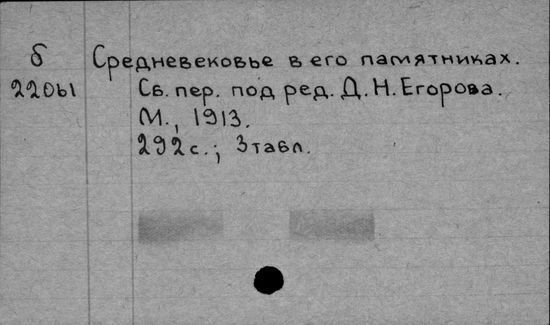 б Средневековье в его памятниках.
22061 Сб. пер. под ред. Д. Н. Егорова.
М., 1913.
292 с.; 3 табл.